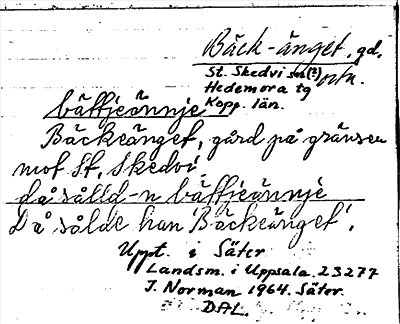 Bäck-änget, gd.
St. Skedvi sn(?) ortn.
Hedemora tg
Kopp. län.
bättjeännje
Bäckeänget, gård på gränsen
mot St. Skedvi.
då såldd-n bättjeännje
Då sålde han 'Bäckeänget'.
Uppt. i Säter
Landsm. i Uppsala. 23277
J. Norman 1964. Säter.
DAL.